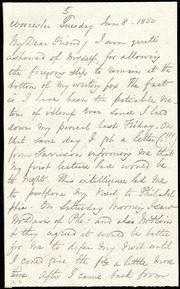 5
Worcester Tuesday Jan 8. 1850
My Dear Friend, I am quite
ashamed of myself for allowing
the foregoing slip to remain at the
bottom of my writing box. The fact
is I have been the
of whenever since I laid
down my pencil last Friday. On
that same day I got a letter (!!!)
from Garrison informing me that
my first lecture here would be
to night. This intelligence led me
to postpone my visit to Philadel
phia. On Saturday Morning I saw
McDavis of Pha: and also McKim
& they agreed it would be better
for me to defer my visit until
I could give the a little more
time. After I came back from